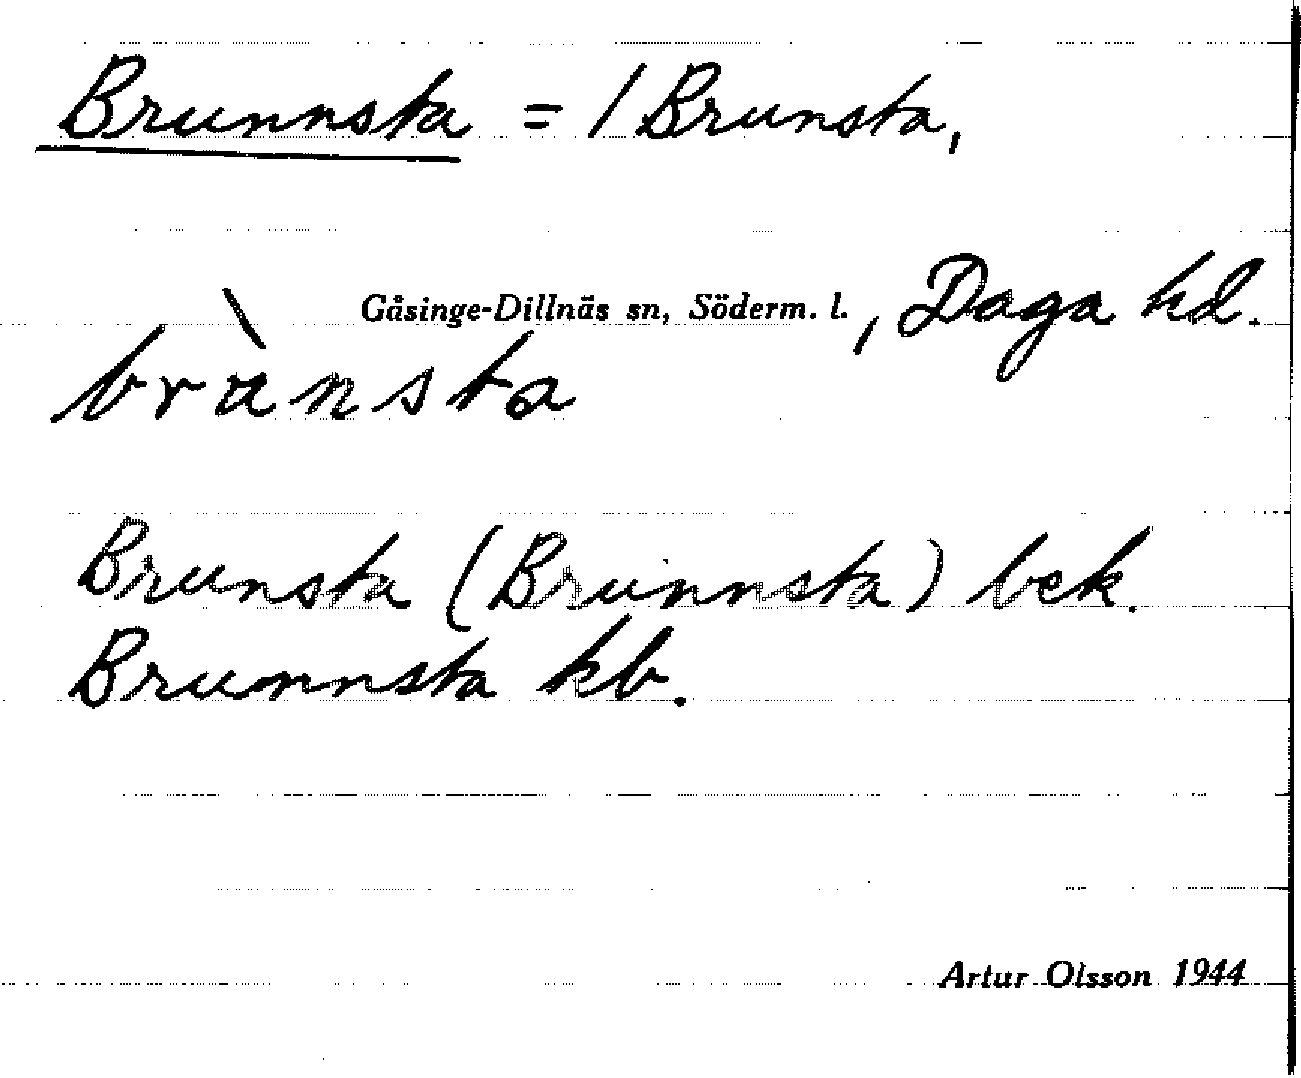 Brunnsta = / Brunsta,
Gåsinge-Dillnäs sn, Söderm. l., Daga hd.
brùnsta
Brunsta (Brunnsta) bek.
Brunnsta kb.
Artur Olsson 1944